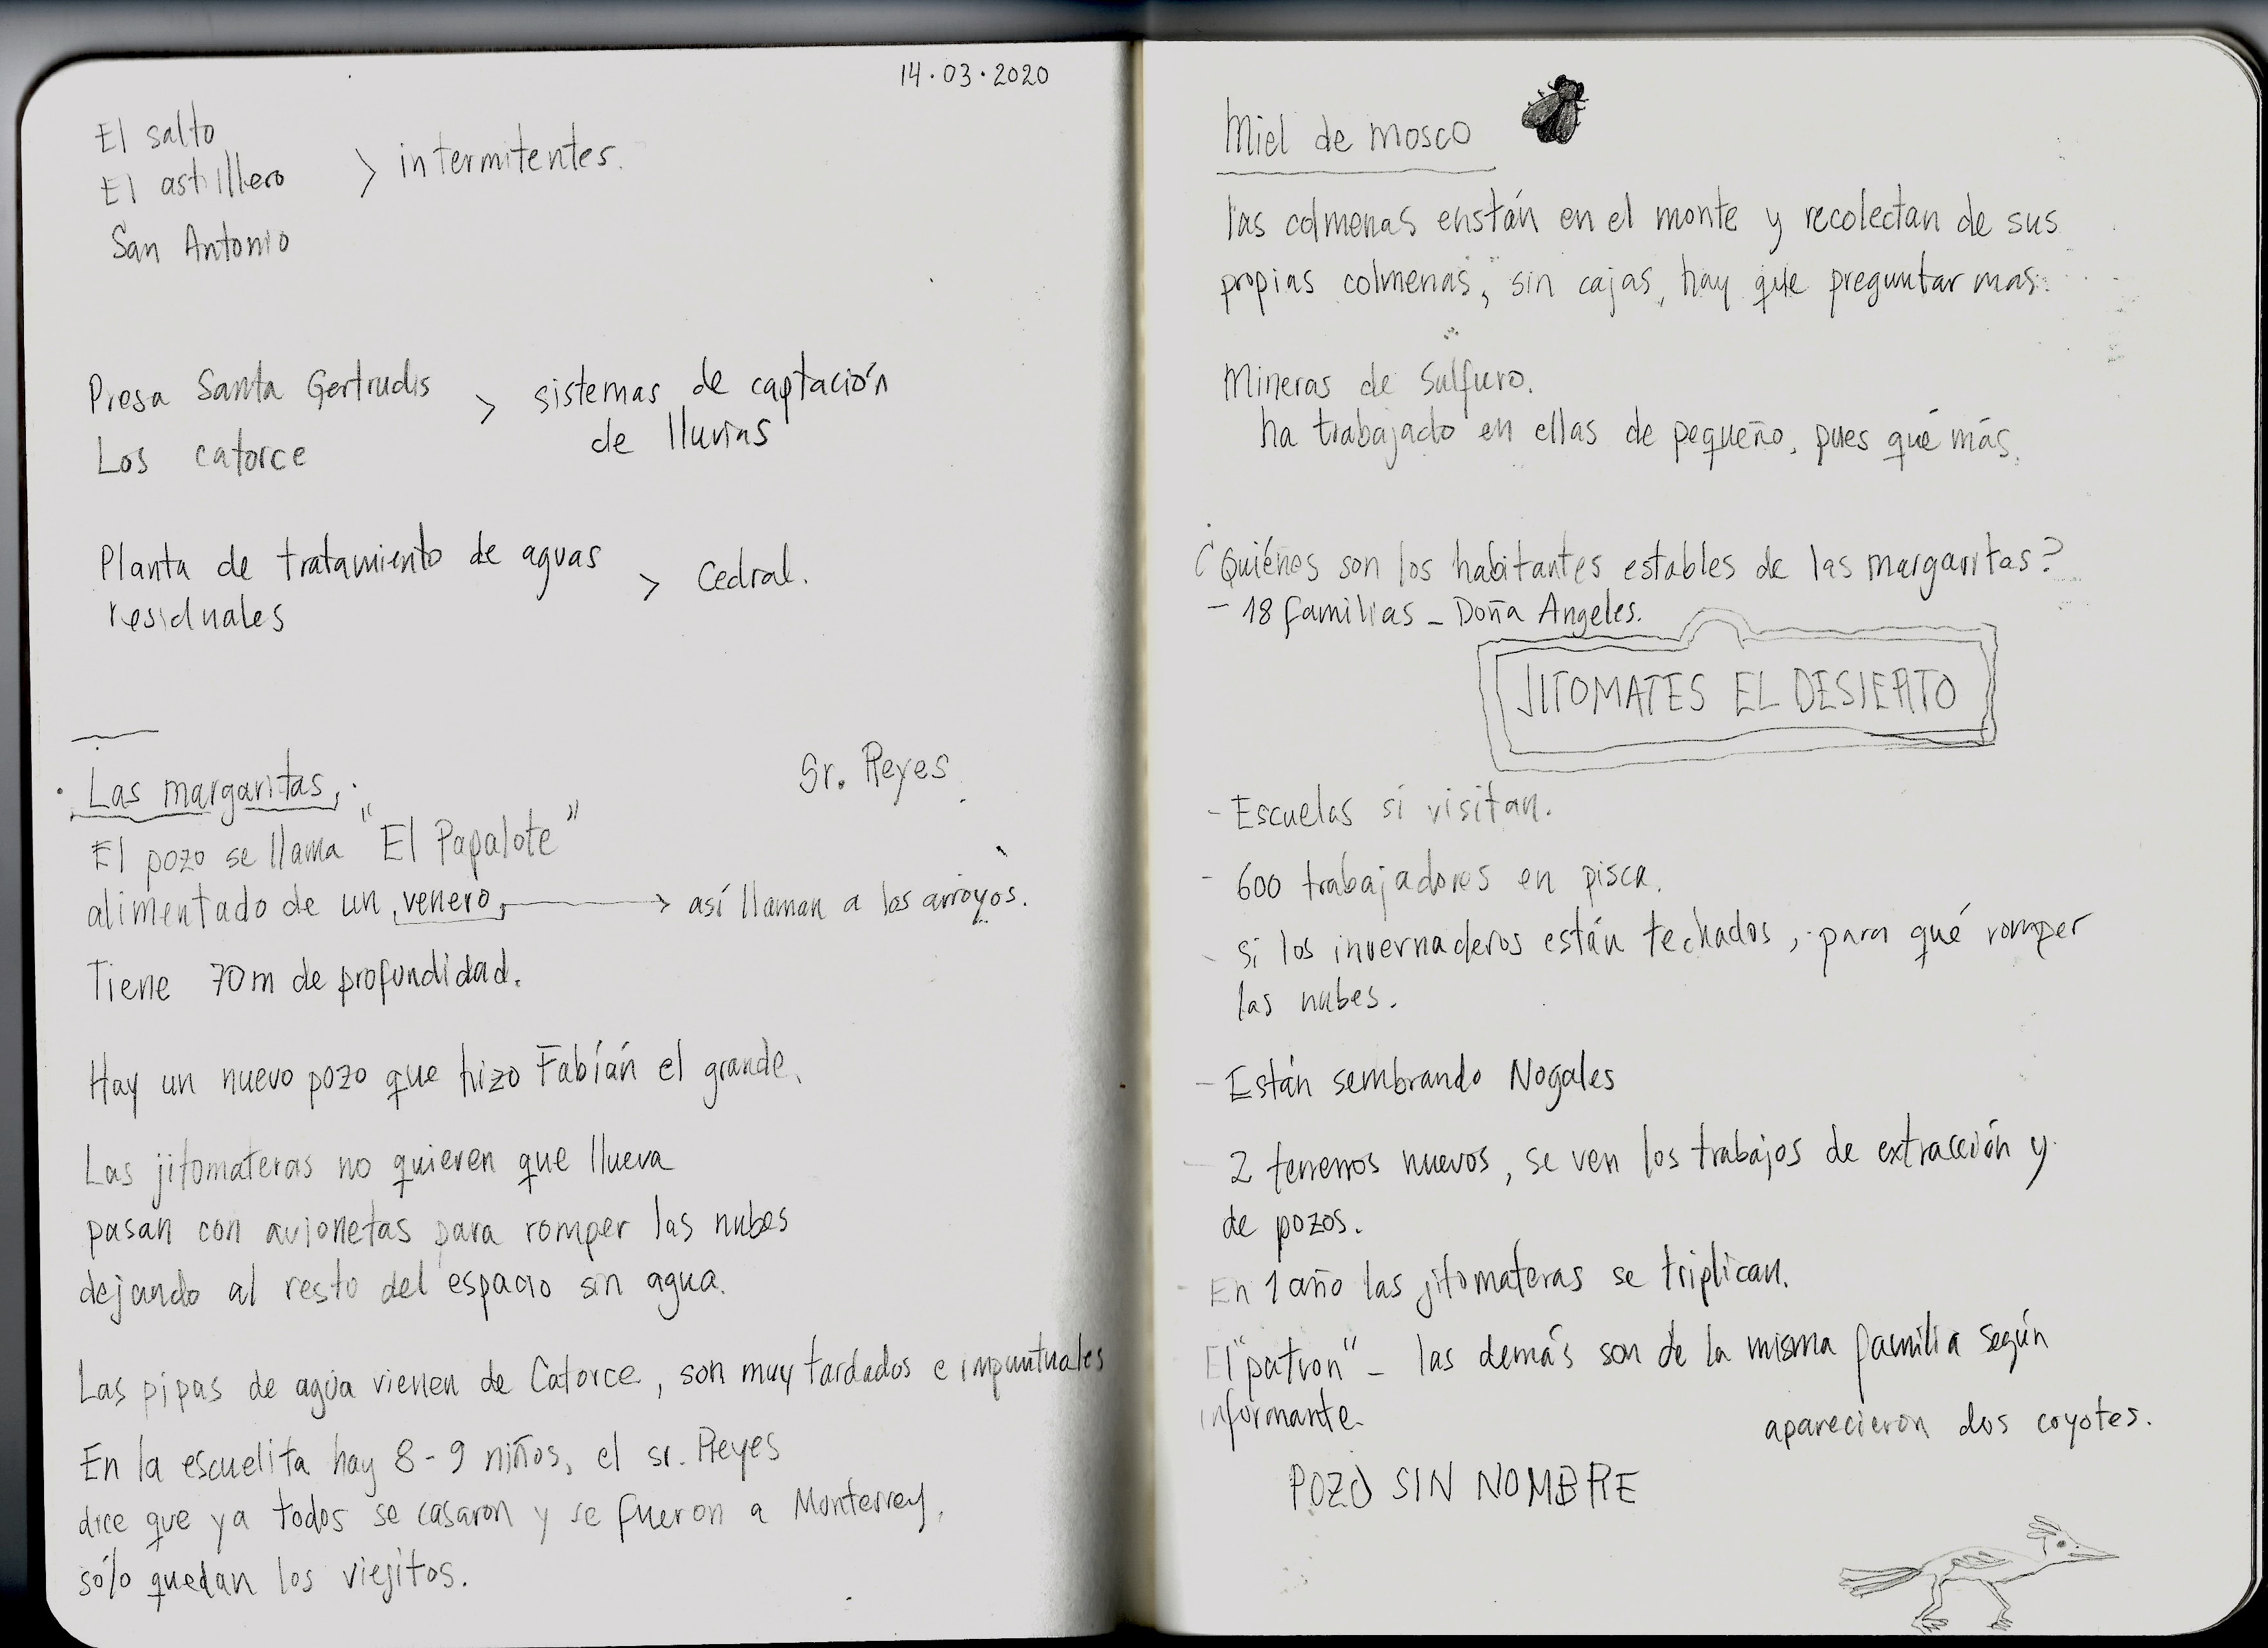 14.03.2020
El salto
El astillero > intermitentes.
San Antonio
Presa Santa Gertrudis > sistemas de captación
Los catorce de lluvias
Planta de tratamiento de aguas > Cedral.
residuales
Las margaritas, Sr. Reyes
El pozo se llama "El Papalote"
alimentado de un venero, → así llaman a los arroyos.
Tiene 70m de profundidad.
Hay un nuevo pozo que hizo Fabián el grande,
Las jitomateras no quieren que llueva
pasan con avionetas para romper las nubes
dejando al resto del espacio sin agua.
Las pipas de agua vienen de Catorce, son muy tardados e impuntuales
En la escuelita hay 8-9 niños, el sr. Reyes
dice que ya todos se casaron y se fueron a Monterrey,
sólo quedan los viejitos.
Miel de mosco
las colmenas enstán en el monte y recolectan de sus
propias colmenas, sin cajas, hay que preguntar mas.
Mineras de Sulfuro.
ha trabajado en ellas de pequeño, pues qué más.
¿Quiénes son los habitantes estables de las margaritas?
- 18 familias - Doña Angeles.
JITOMATES EL DESIERTO
- Escuelas si visitan.
- 600 trabajadores en pisca.
- si los invernaderos están techados, para qué romper
las nubes.
- Están sembrando Nogales
- 2 terrenos nuevos, se ven los trabajos de extracción y
de pozos.
- En 1 año las jitomateras se triplican.
El "patron" - las demás son de la misma familia según
informante.
aparecieron dos coyotes.
POZO SIN NOMBRE